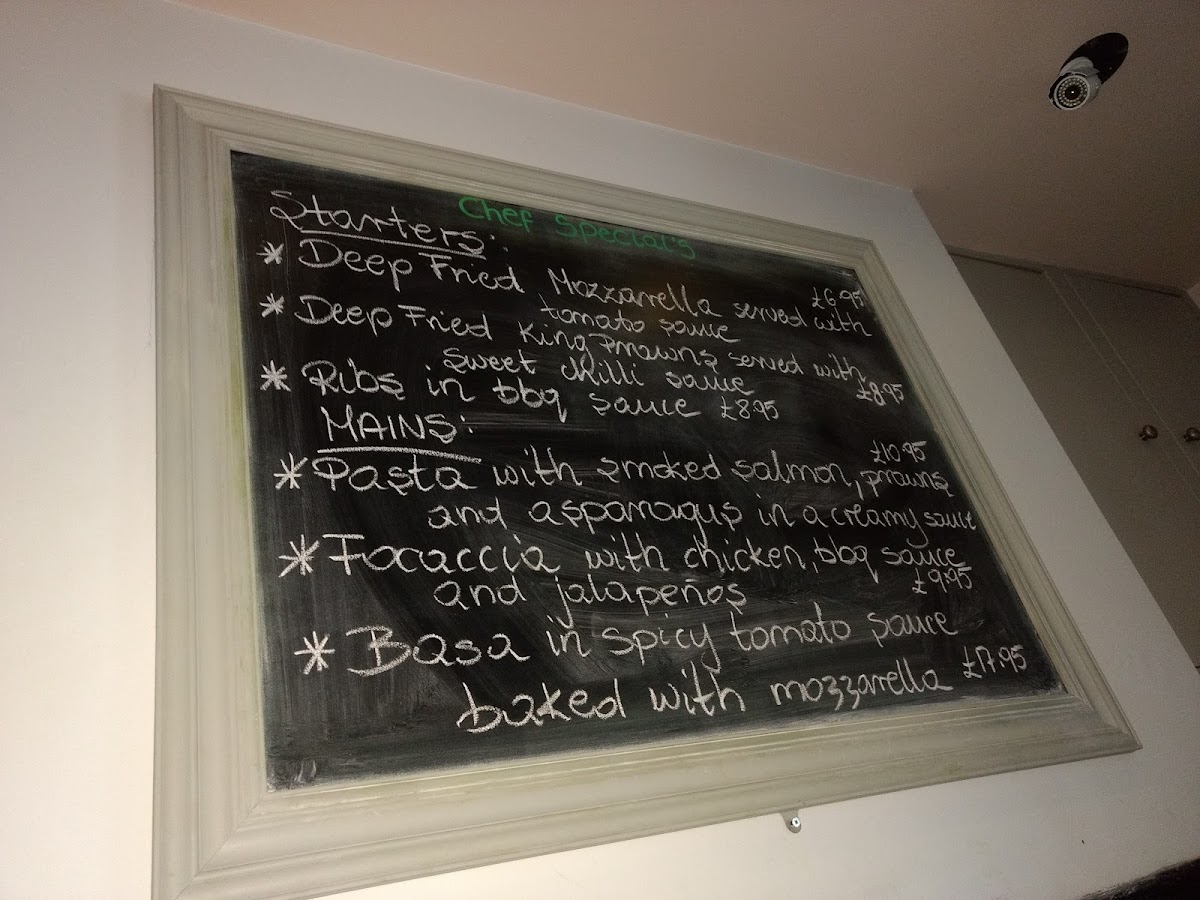 Chef Special's
Starters:
* Deep Fried Mozzarella served with £6.95
tomato sauce
* Deep Fried King Prawns served with
Sweet chilli sauce £8.95
* Ribs in bbq sauce £8.95
MAINS:
£10.95
* Pasta with smoked salmon, prawns
and asparagus in a creamy sauce
* Focaccia with chicken, bbq sauce
and jalapeños £9.95
* Basa in spicy tomato sauce
baked with mozzarella £17.95